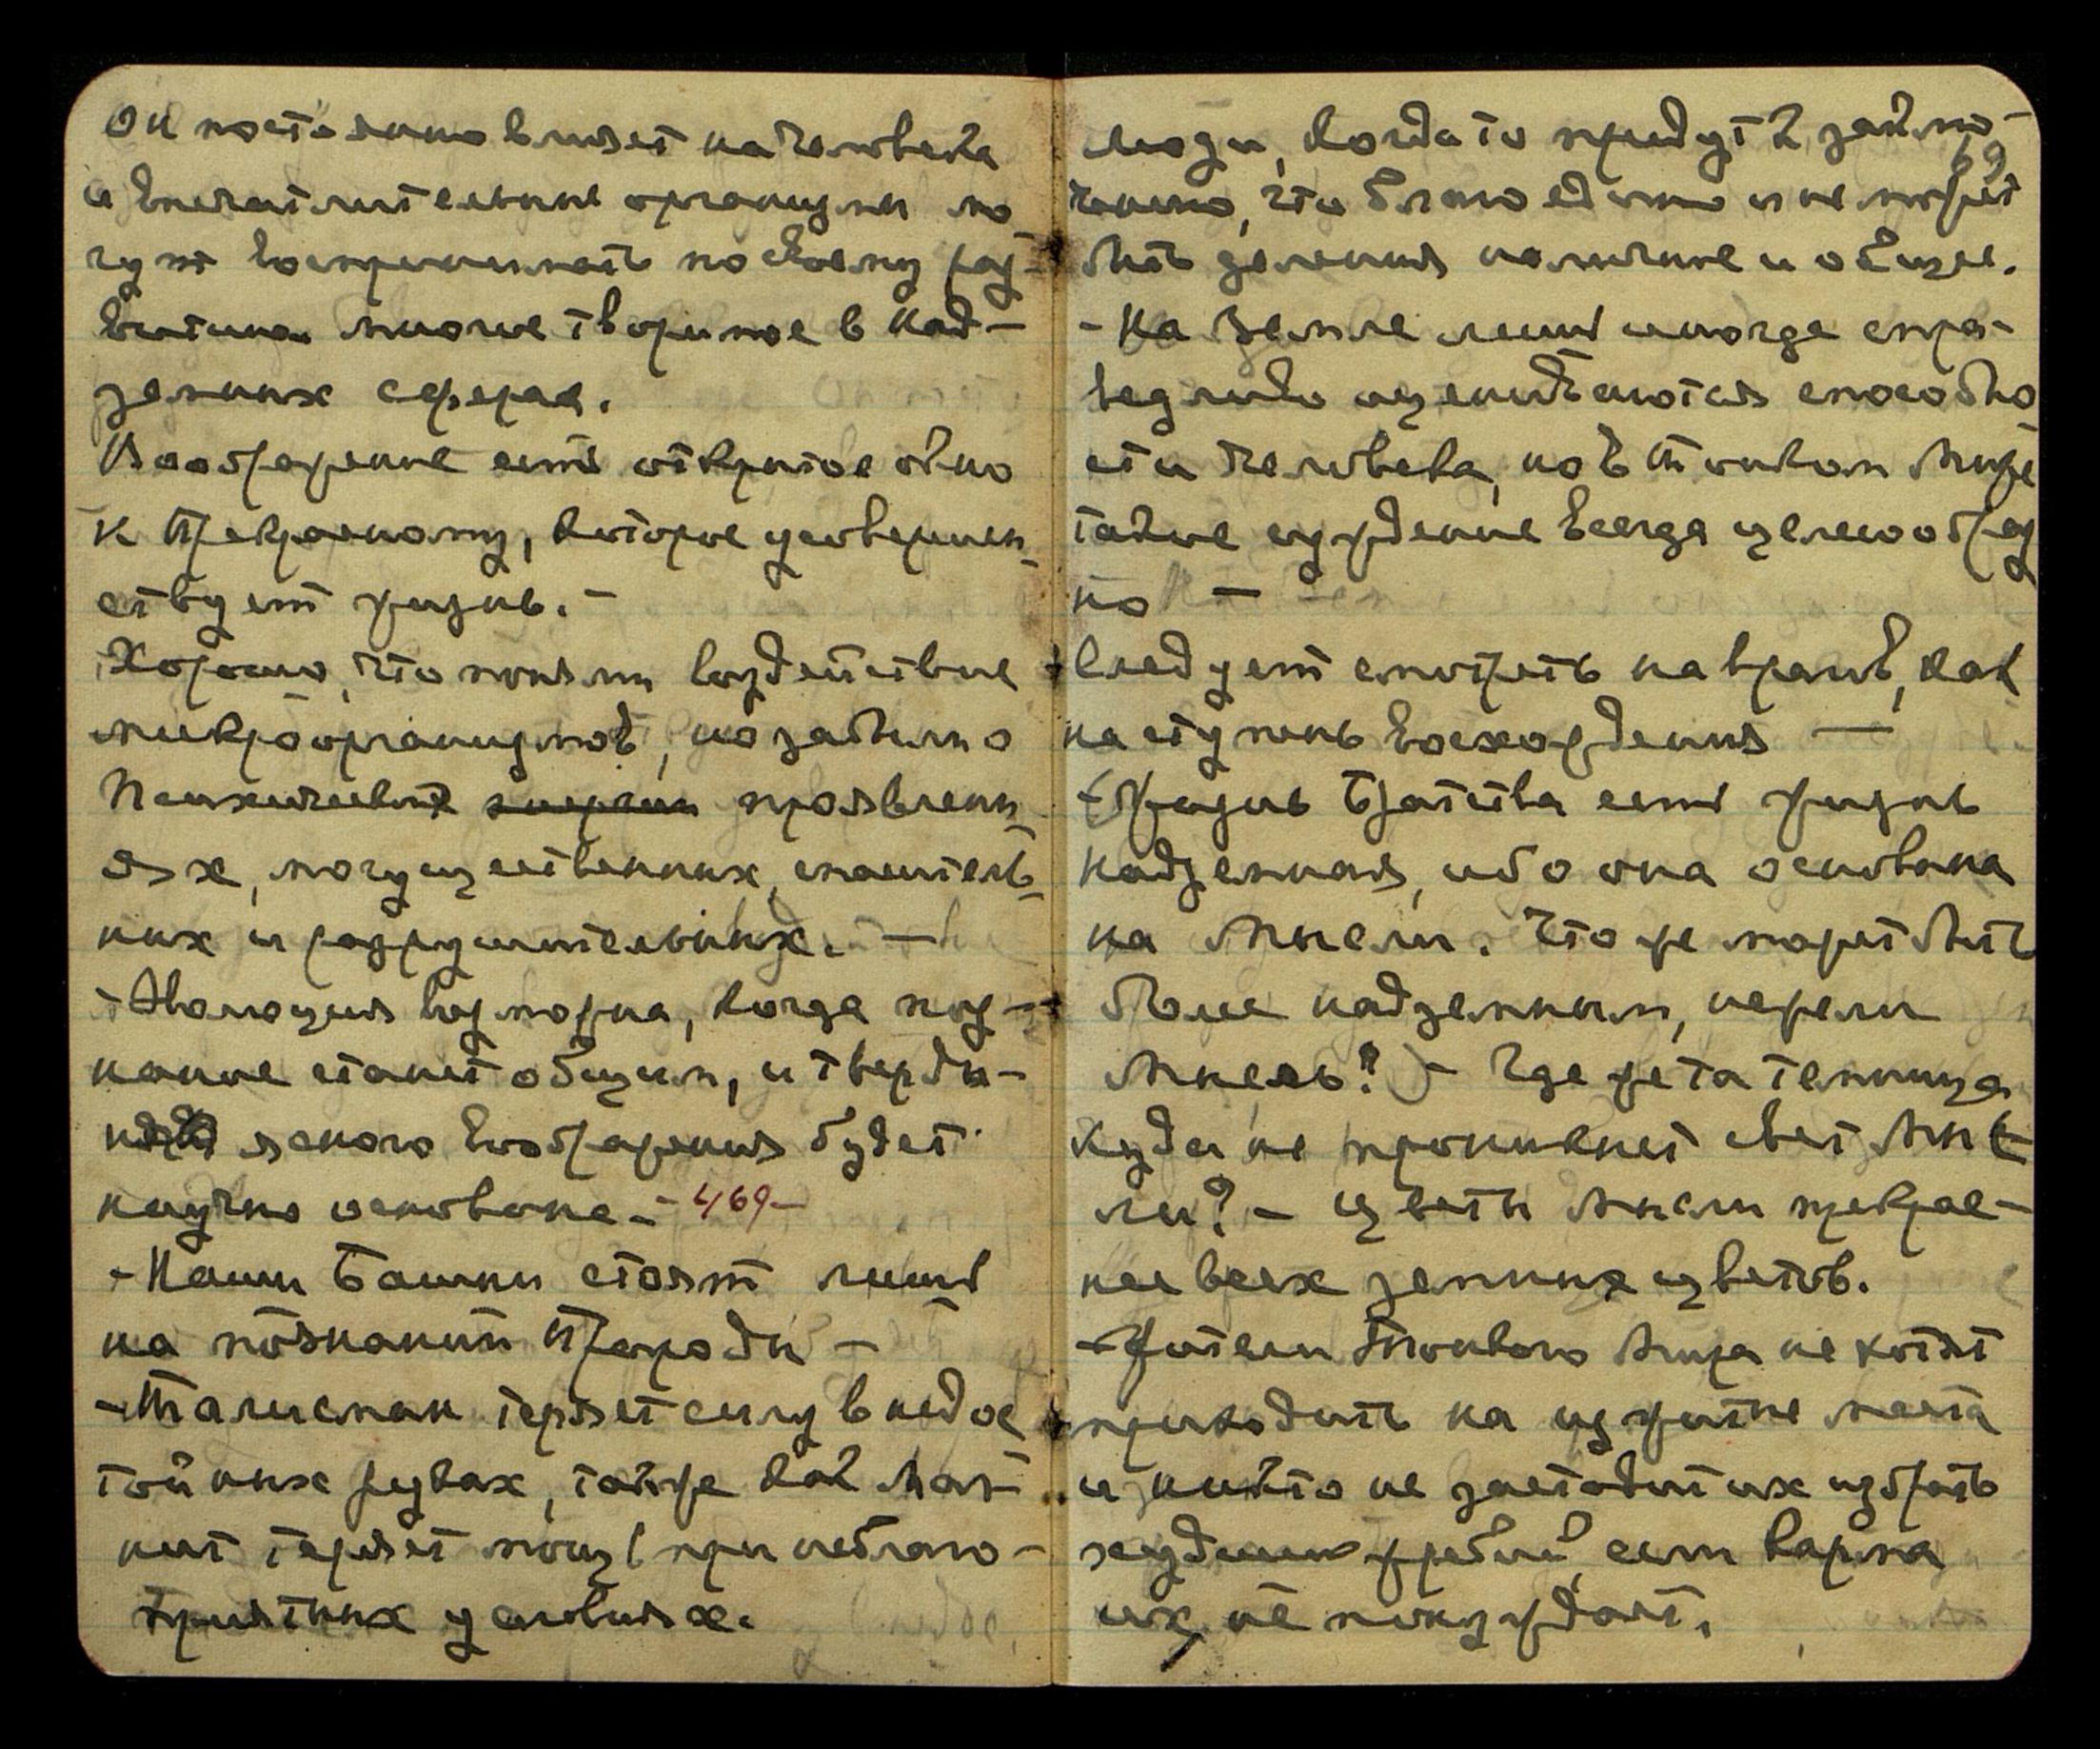 Он постоянно влияет на человека
и впечатлительные организмы мо
гут воспринимать по своему раз-
витию многое творимое в Над-
земных сферах.
Воображение есть открытое окно
к Прекрасному, которое усовершен-
ствует жизнь. –
Хорошо, что поняли воздействие
микроорганизмов, но забыли о
Психических энергии проявлени
ях, могущественных, спаситель-
ных и разрушительных. –
Эволюция возможна, когда поз-
нание станет общим, и тверды-
ня ясного воображения будет
научно основана – 469 –
– Наши Башни стоят лишь
на познании Природы –
– Талисман теряет силу в недос
тойных руках, также как Маг-
нит теряет мощь при неблаго-
приятных условиях.
люди, когда то придут к заклю-
69
чению, что благо едино и не может
быть деления на личное и общее.
– На Земле лишь иногда спра-
ведливо оцениваются способно
сти человека, но в Тонком Мире
такое суждение всегда целесообраз
но –
Следует смотреть на врагов, как
на ступень восхождения –
– (Жизнь Братства есть жизнь
надземная, ибо она основана
на Мысли. Что же может быть
более надземным, нежели
Мысль?) – Где же та темница
куда не проникнет свет Мыс
ли? – Цветы Мысли прекрас-
нее всех земных цветов.
– Жители Тонкого Мира не хотят
приходить на изжитые места
и никто не заставит их избрать
худший жребий, если карма
их не понуждает.